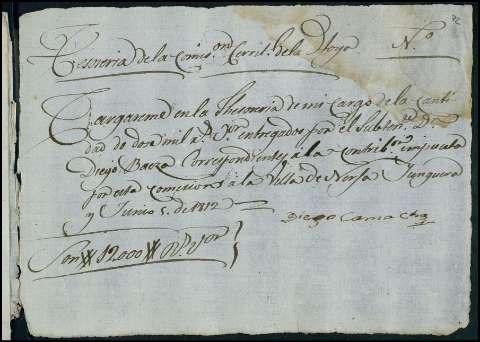 Tesoreria de la Comis.on Territ.l de la Hoya N.o
Cargareme en la Thesoreria de mi Cargo de la Canti
dad de dose mil r.s V.on entregados por el Subten.te D.n
Diego Baeza Correspondientes à la Contrib.on impuesta
por esta Comision à la Villa de Nerja Junquera
y Junio 5. de 1812
Diego Camacho
Son 12.000 R.s V.on